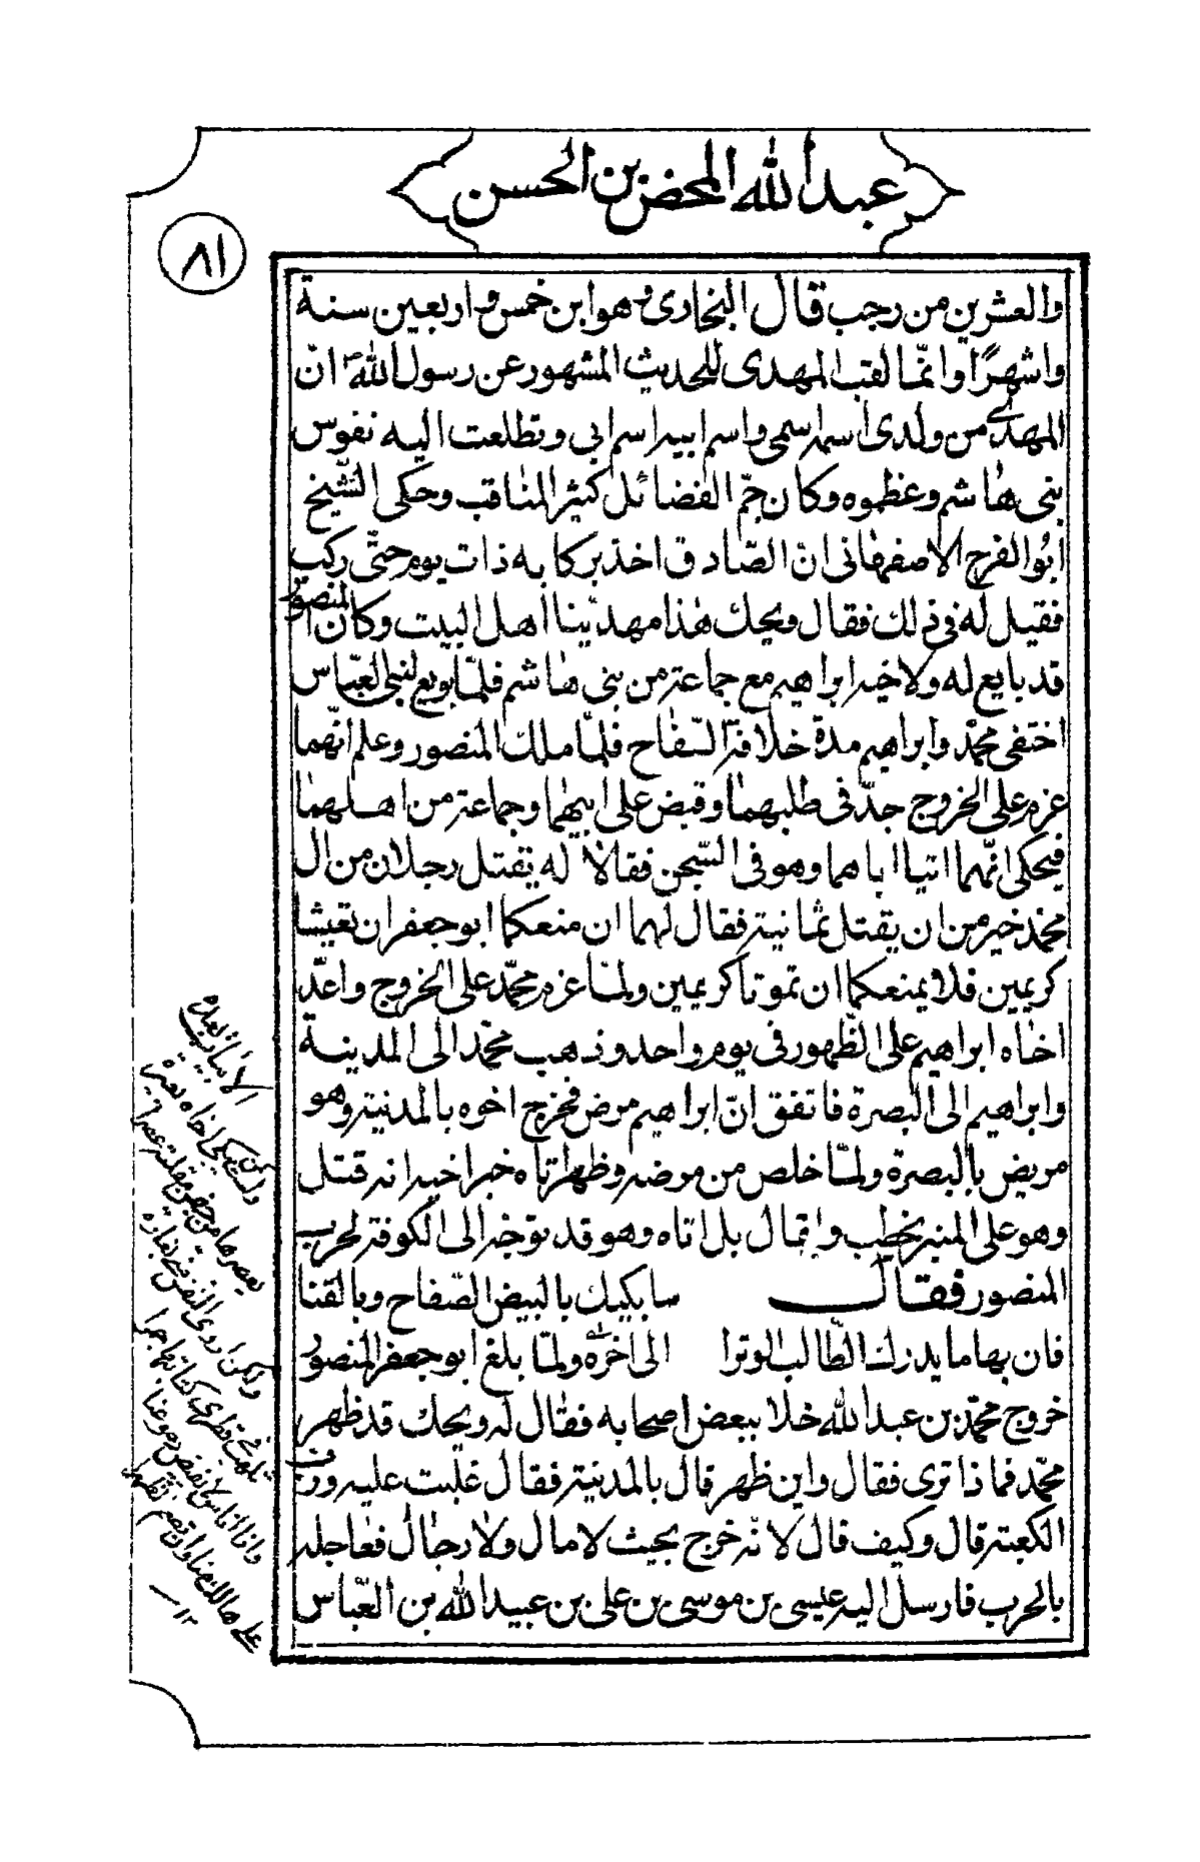 عبد الله المحض بن الحسن
٨١
والعشرين من رجب قال البخارى وهو ابن خمس واربعين سنة
واشهرًا وانّما لقب المهدى للحديث المشهور عن رسول اللهؐ انّ
المهدى من ولدى اسمه اسمى واسم ابيه اسم ابى وتطلعت اليه نفوس
بنى هاشم وعظموه وكان جمّ الفضائل كثير المناقب وحكى الشّيخ
ابُو الفرج الاصفهانى انّ الصّادق اخذ بركابه ذات يوم حتّى ركب
فقيل له فى ذلك فقال ويحك هذا مهديّنا اهل البيت وكان المنصور
قد بايع له ولاخيه ابراهيم مع جماعة من بنى هاشم فلمّا بويع لبنى العبّاس
اختفى محمّد وابراهيم مدة خلافة السّفاح فلمّا ملك المنصور وعلم انّهما
عزم على الخروج جدّ فى طلبهما وقبض على ابيهما وجماعة من اهلهما
فيحكى انّهما اتيا اباهما وهو فى السّجن فقالا له يقتل رجلان من ال
محمد خير من ان يقتل ثمانية فقال لهما ان منعكما ابو جعفر ان تعيشا
كريمين فلا يمنعكما ان تموتا كريمين ولمّا عزم محمّد على الخروج واعدّ
اخاه ابراهيم على الظّهور فى يوم واحد وذهب محمّد الى المدينة
وابراهيم الى البصرة فاتفق انّ ابراهيم مرض فخرج اخوه بالمدنية وهو
مريض بالبصرة ولمّا خلص من مرضه وظهر اتاه خبر اخيه انه قتل
وهو على المنبر يخطب وقال بل اتاه وهو قد توجه الى الكوفة لحرب
المنصور فقال سابكيك بالبيض الصّفاح وبالقنا
فان بها ما يدرك الطّالب الوترا الى اخره ولمّا بلغ ابو جعفر المنصور
خروج محمّد بن عبد الله خلا ببعض اصحابه فقال له ويحك قد ظهر
محمّد فماذا ترى فقال واين ظهر قال بالمدنية فقال غلبت عليه ورب
الكعبة قال وكيف قال لانّه خرج بحيث لا مال ولا رجال فعاجله
بالحرب فارسل اليه عيسى بن موسى بن على بن عبيد الله بن العبّاس
ولست كمن يبكى اخاه بعبرة
يعصرها من جفن مقلته عصرا